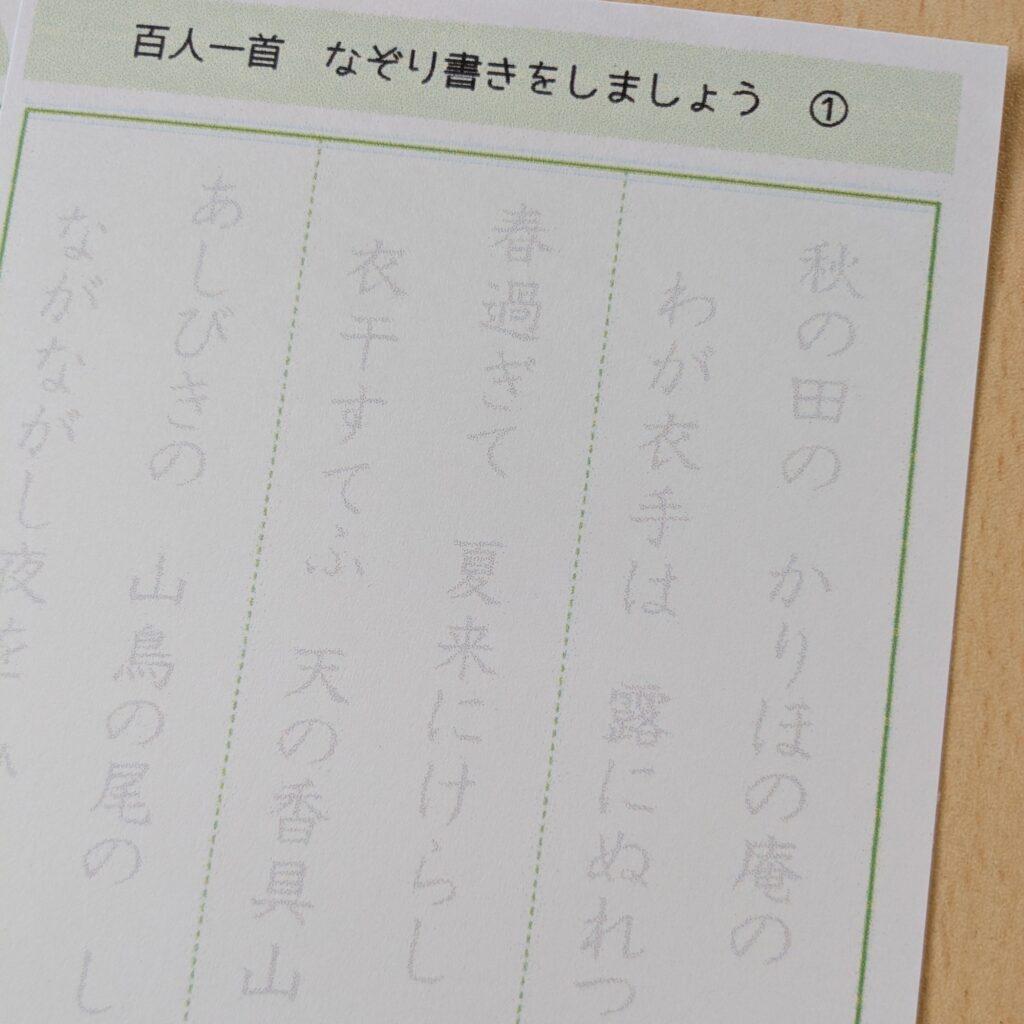 百人一首　なぞり書きをしましょう　①
秋の田の　かりほの庵の
わが衣手は　露にぬれつ
春過ぎて　夏来にけらし
衣干すてふ　天の香具山
あしびきの　山鳥の尾の　し
ながながし夜を